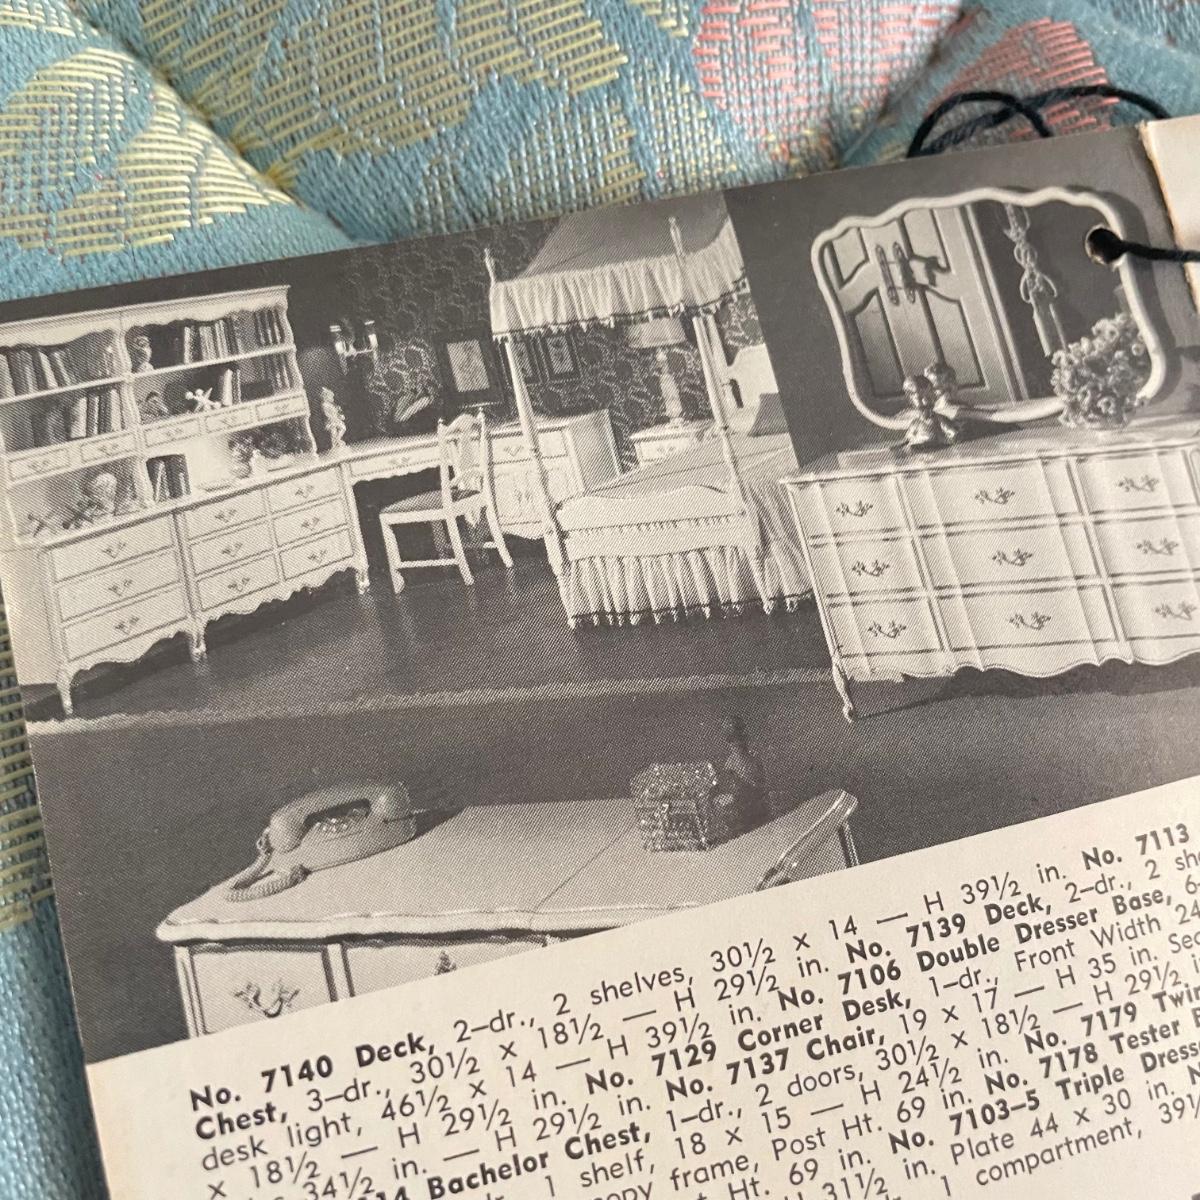 No. 7140 Deck, 2–dr., 2 shelves, 30½ x 14 — H 39½ in. No. 7113
Chest, 3–dr., 30½ x 18½ — H 29½ in. No. 7139 Deck, 2–dr., 2 she
desk light, 46½ x 14 — H 39½ in. No. 7106 Double Dresser Base, 6-
x 18½ — H 29½ in. No. 7129 Corner Desk, 1–dr., Front Width 24
34½ in. — H 29½ in. No. 7137 Chair, 19 x 17 — H 35 in. Sec
Bachelor Chest, 1–dr., 2 doors, 30½ x 18½ — H 29½ i
1 shelf, 18 x 15 — H 24½ in. No. 7179 Twin
frame, Post Ht. 69 in. No. 7178 Tester B
Ht. 69 in. No. 7103–5 Triple Dresse
31½ in. Plate 44 x 30 in. N
1 compartment, 39½